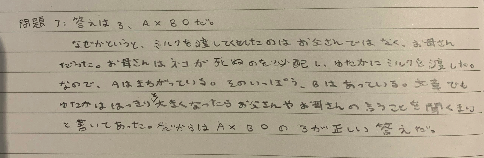 問題7：答えは3、A×B○だ。
なぜかというと、ミルクを渡してくれたのはお父さんではなく、お母さん
だった。お母さんはネコが死ぬのを心配し、ゆたかにミルクを渡した。
なので、Aはまちがっている。そのいっぽう、Bはあっている。文章でも
ゆたかははっきり大きくなったらお父さんやお母さんの言うことを聞くまい
と書いてあった。だからA×B○の3が正しい答えだ。